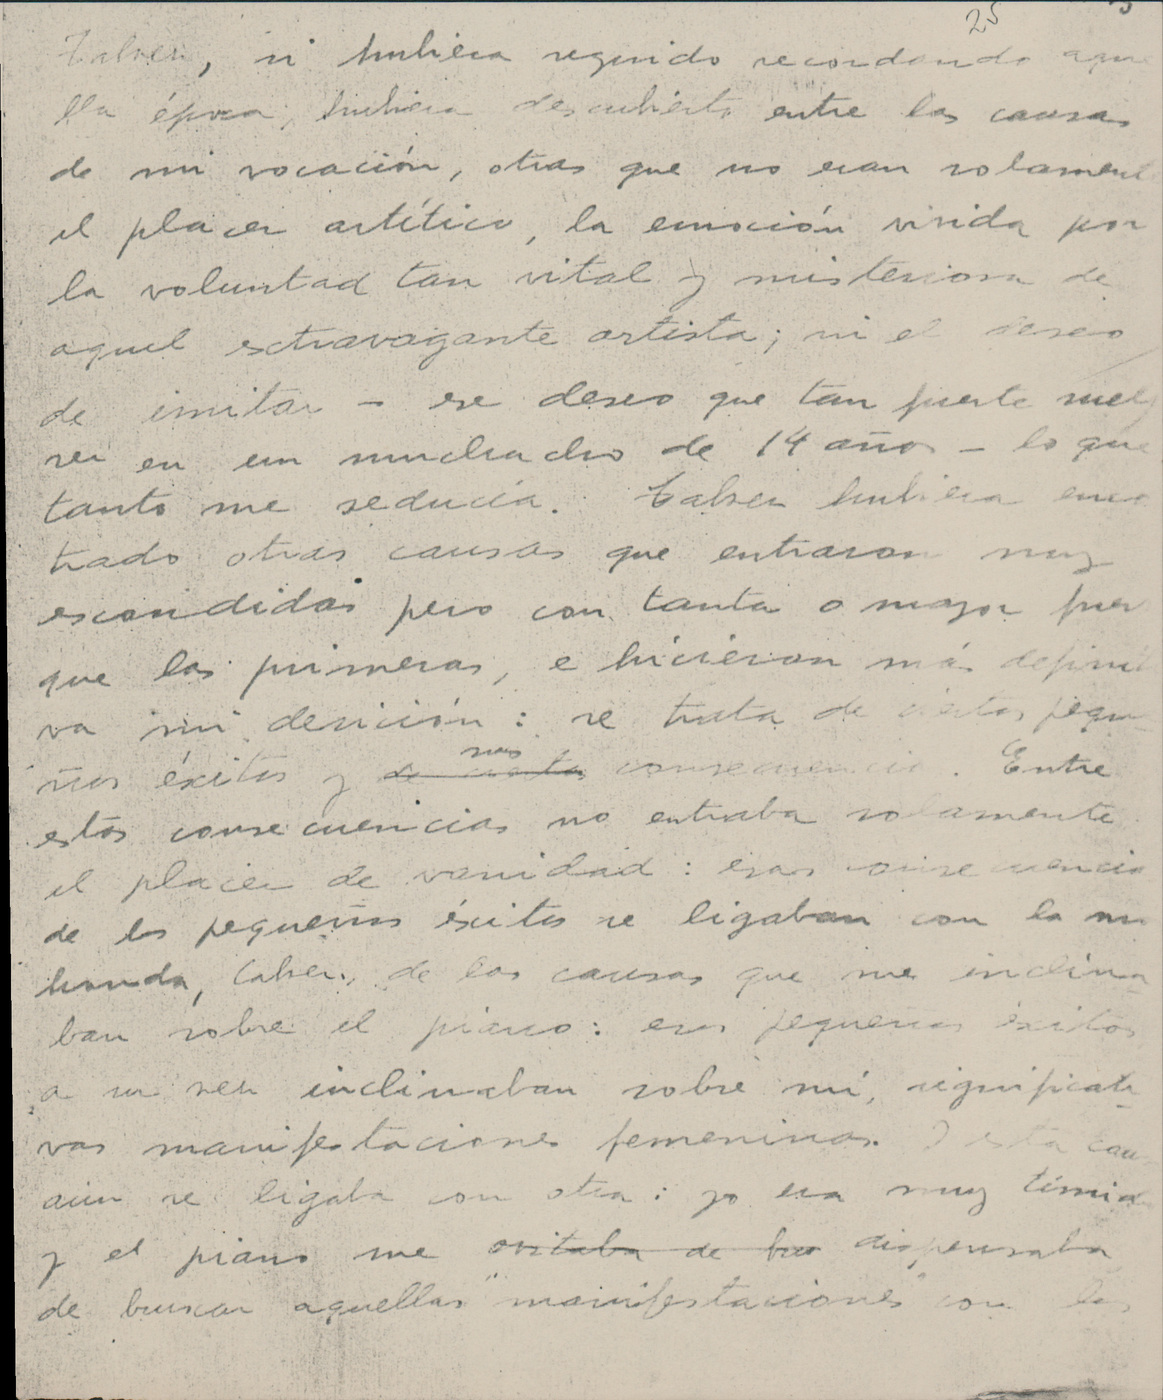 25
Talvez, si hubiera seguido recordando aque
lla época, hubiera descubierto entre las causas
de mi vocación, otras que no eran solament
el placer artítico, la emoción vivida por
la voluntad tan vital y misteriosa de
aquel estravagante artista; ni el deseo
de imitar – ese deseo que tan fuerte suele
ser en un muchacho de 14 años – lo que
tanto me seducía. Talvez hubiera encon
trado otras causas que entraron muy
escondidas pero con tanta o mayor fuer
que las primeras, e hicieron más definiti
va mi desición: se trata de ciertos peque
ños éxitos y de cierta sus consecuencias. Entre
estas consecuencias no entraba solamente
el placer de vanidad: esas consecuencia
de los pequeños éxitos se ligaban con la mas
honda, talvez, de las causas que me inclina
ban sobre el piano: esos pequeños éxitos
a su vez inclinaban sobre mí, significati
vas manifestaciones femeninas. Y esta cau
aún se ligaba con otra: yo era muy tímid
y el piano me evitaba de bus dispensaba
de buscar aquellas "manifestaciones" con las